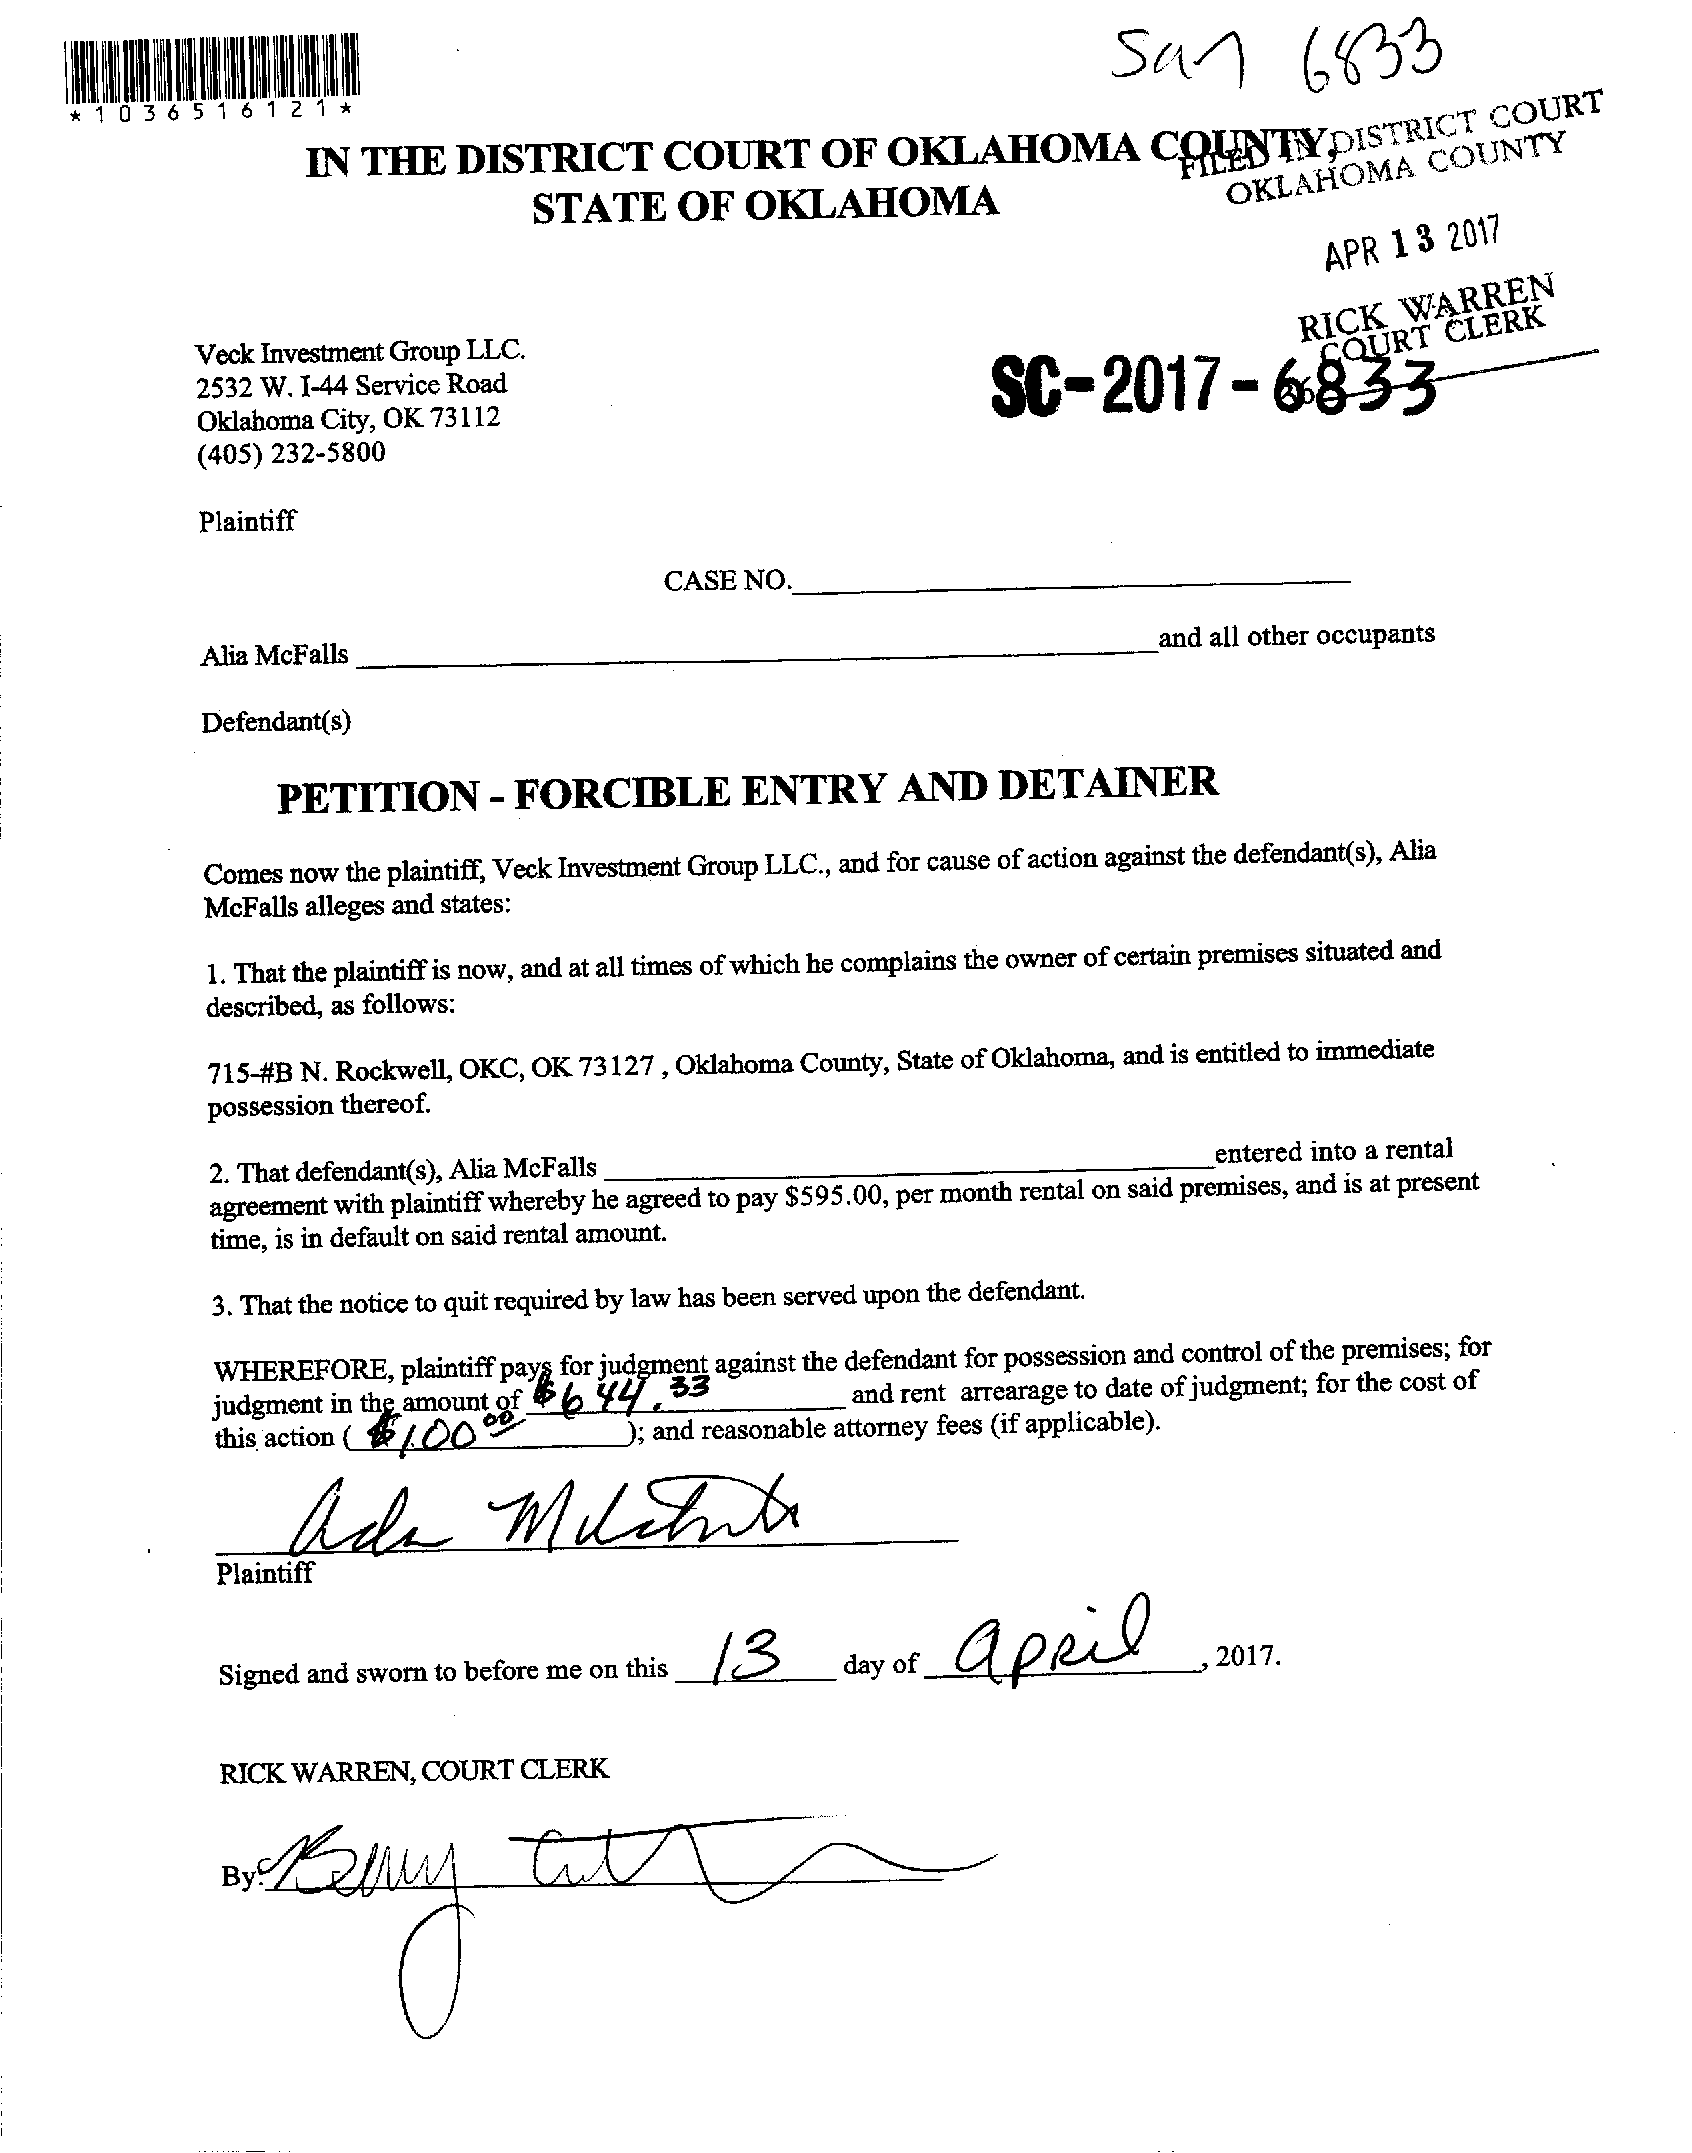 *1036516121*
San 6833
IN THE DISTRICT COURT OF OKLAHOMA COUNTY,
STATE OF OKLAHOMA
FILED IN DISTRICT COURT
OKLAHOMA COUNTY
APR 13 2017
RICK WARREN
COURT CLERK
SC-2017-6833
Veck Investment Group LLC.
2532 W. I-44 Service Road
Oklahoma City, OK 73112
(405) 232-5800
Plaintiff
CASE NO.
Alia McFalls and all other occupants
Defendant(s)
PETITION - FORCIBLE ENTRY AND DETAINER
Comes now the plaintiff, Veck Investment Group LLC., and for cause of action against the defendant(s), Alia
McFalls alleges and states:
1. That the plaintiff is now, and at all times of which he complains the owner of certain premises situated and
described, as follows:
715-#B N. Rockwell, OKC, OK 73127 , Oklahoma County, State of Oklahoma, and is entitled to immediate
possession thereof.
2. That defendant(s), Alia McFalls entered into a rental
agreement with plaintiff whereby he agreed to pay $595.00, per month rental on said premises, and is at present
time, is in default on said rental amount.
3. That the notice to quit required by law has been served upon the defendant.
WHEREFORE, plaintiff pays for judgment against the defendant for possession and control of the premises; for
judgment in the amount of $644.33 and rent arrearage to date of judgment; for the cost of
this action ( $100 00 ); and reasonable attorney fees (if applicable).
Plaintiff
Signed and sworn to before me on this 13 day of April, 2017.
RICK WARREN, COURT CLERK
By: